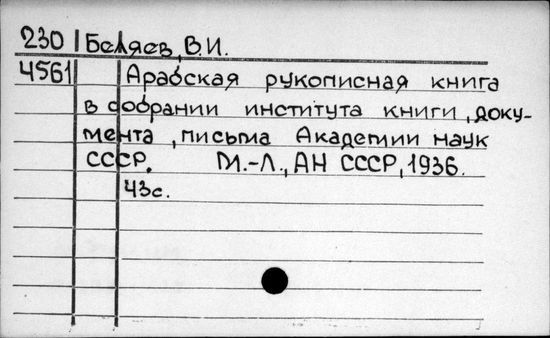 230 Беляев, В.И.
4561 Арабская рукописная книга
в собрании института книги, доку-
мента, письма Академии наук
СССР. М.-Л., АН СССР, 1936.
43с.